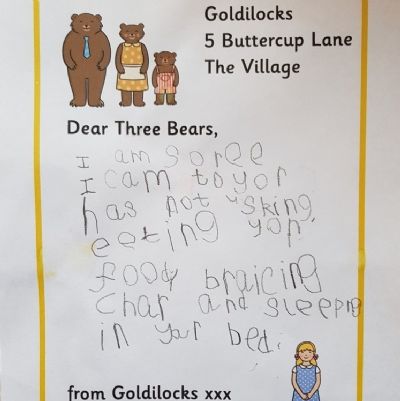 Goldilocks
5 Buttercup Lane
The Village
Dear Three Bears,
I am soree
I cam to yor
has not asking
eeting yor
food braicing
char and sleeping
in your bed.
from Goldilocks xxx